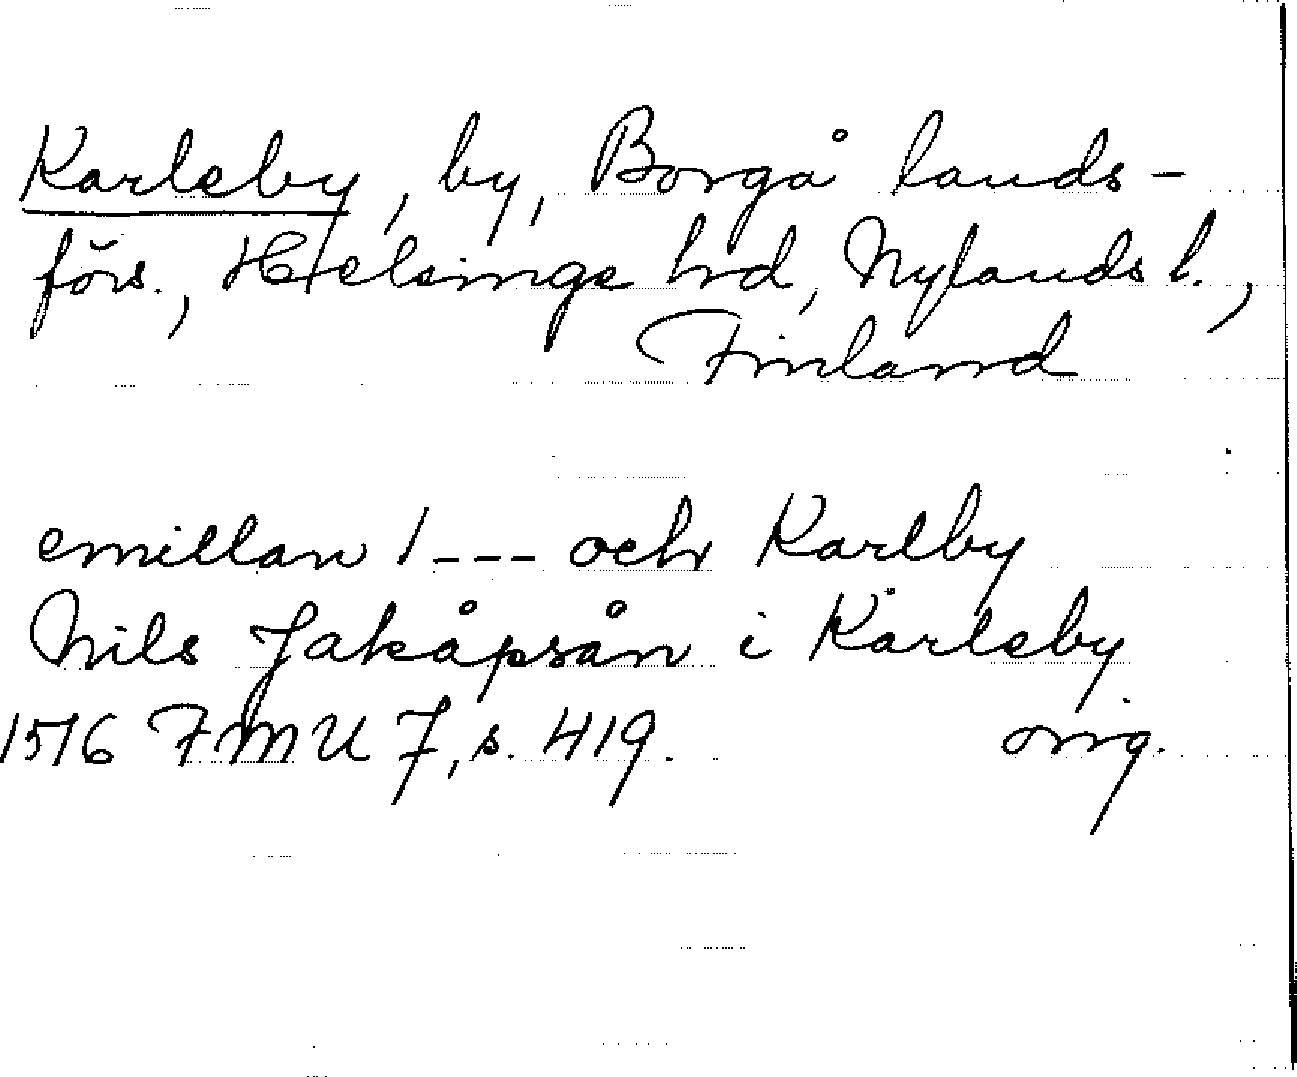 Karleby, by, Borgå lands-
förs., Helsinge hrd, Nylands l.,
Finland
emillan / --- och Karlby
Nils Jakåpsån i Kärleby
1516 FMU 7, s. 419. orig.